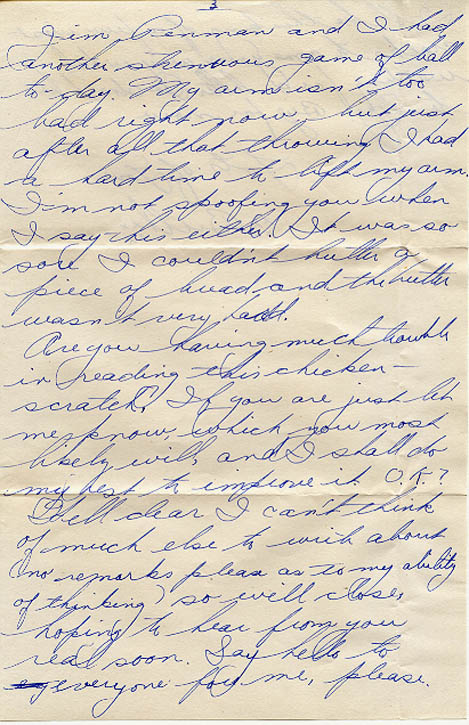 3
Jim Penman and I had
another strenuous game of ball
to-day. My arm isn't too
bad right now, but just
after all that throwing I had
a hard time to lift my arm.
I'm not spoofing you when
I say this either. It was so
sore I couldn't butter a
piece of bread and the butter
wasn't very hard.
Are you having much trouble
in reading this chicken-
scratch? If you are just let
me know, which you most
likely will, and I shall do
my best to improve it. O.K.?
Well dear I can't think
of much else to write about
(no remarks please as to my ability
of thinking) so will close,
hoping to hear from you
real soon. Say hello to
everyone for me, please.